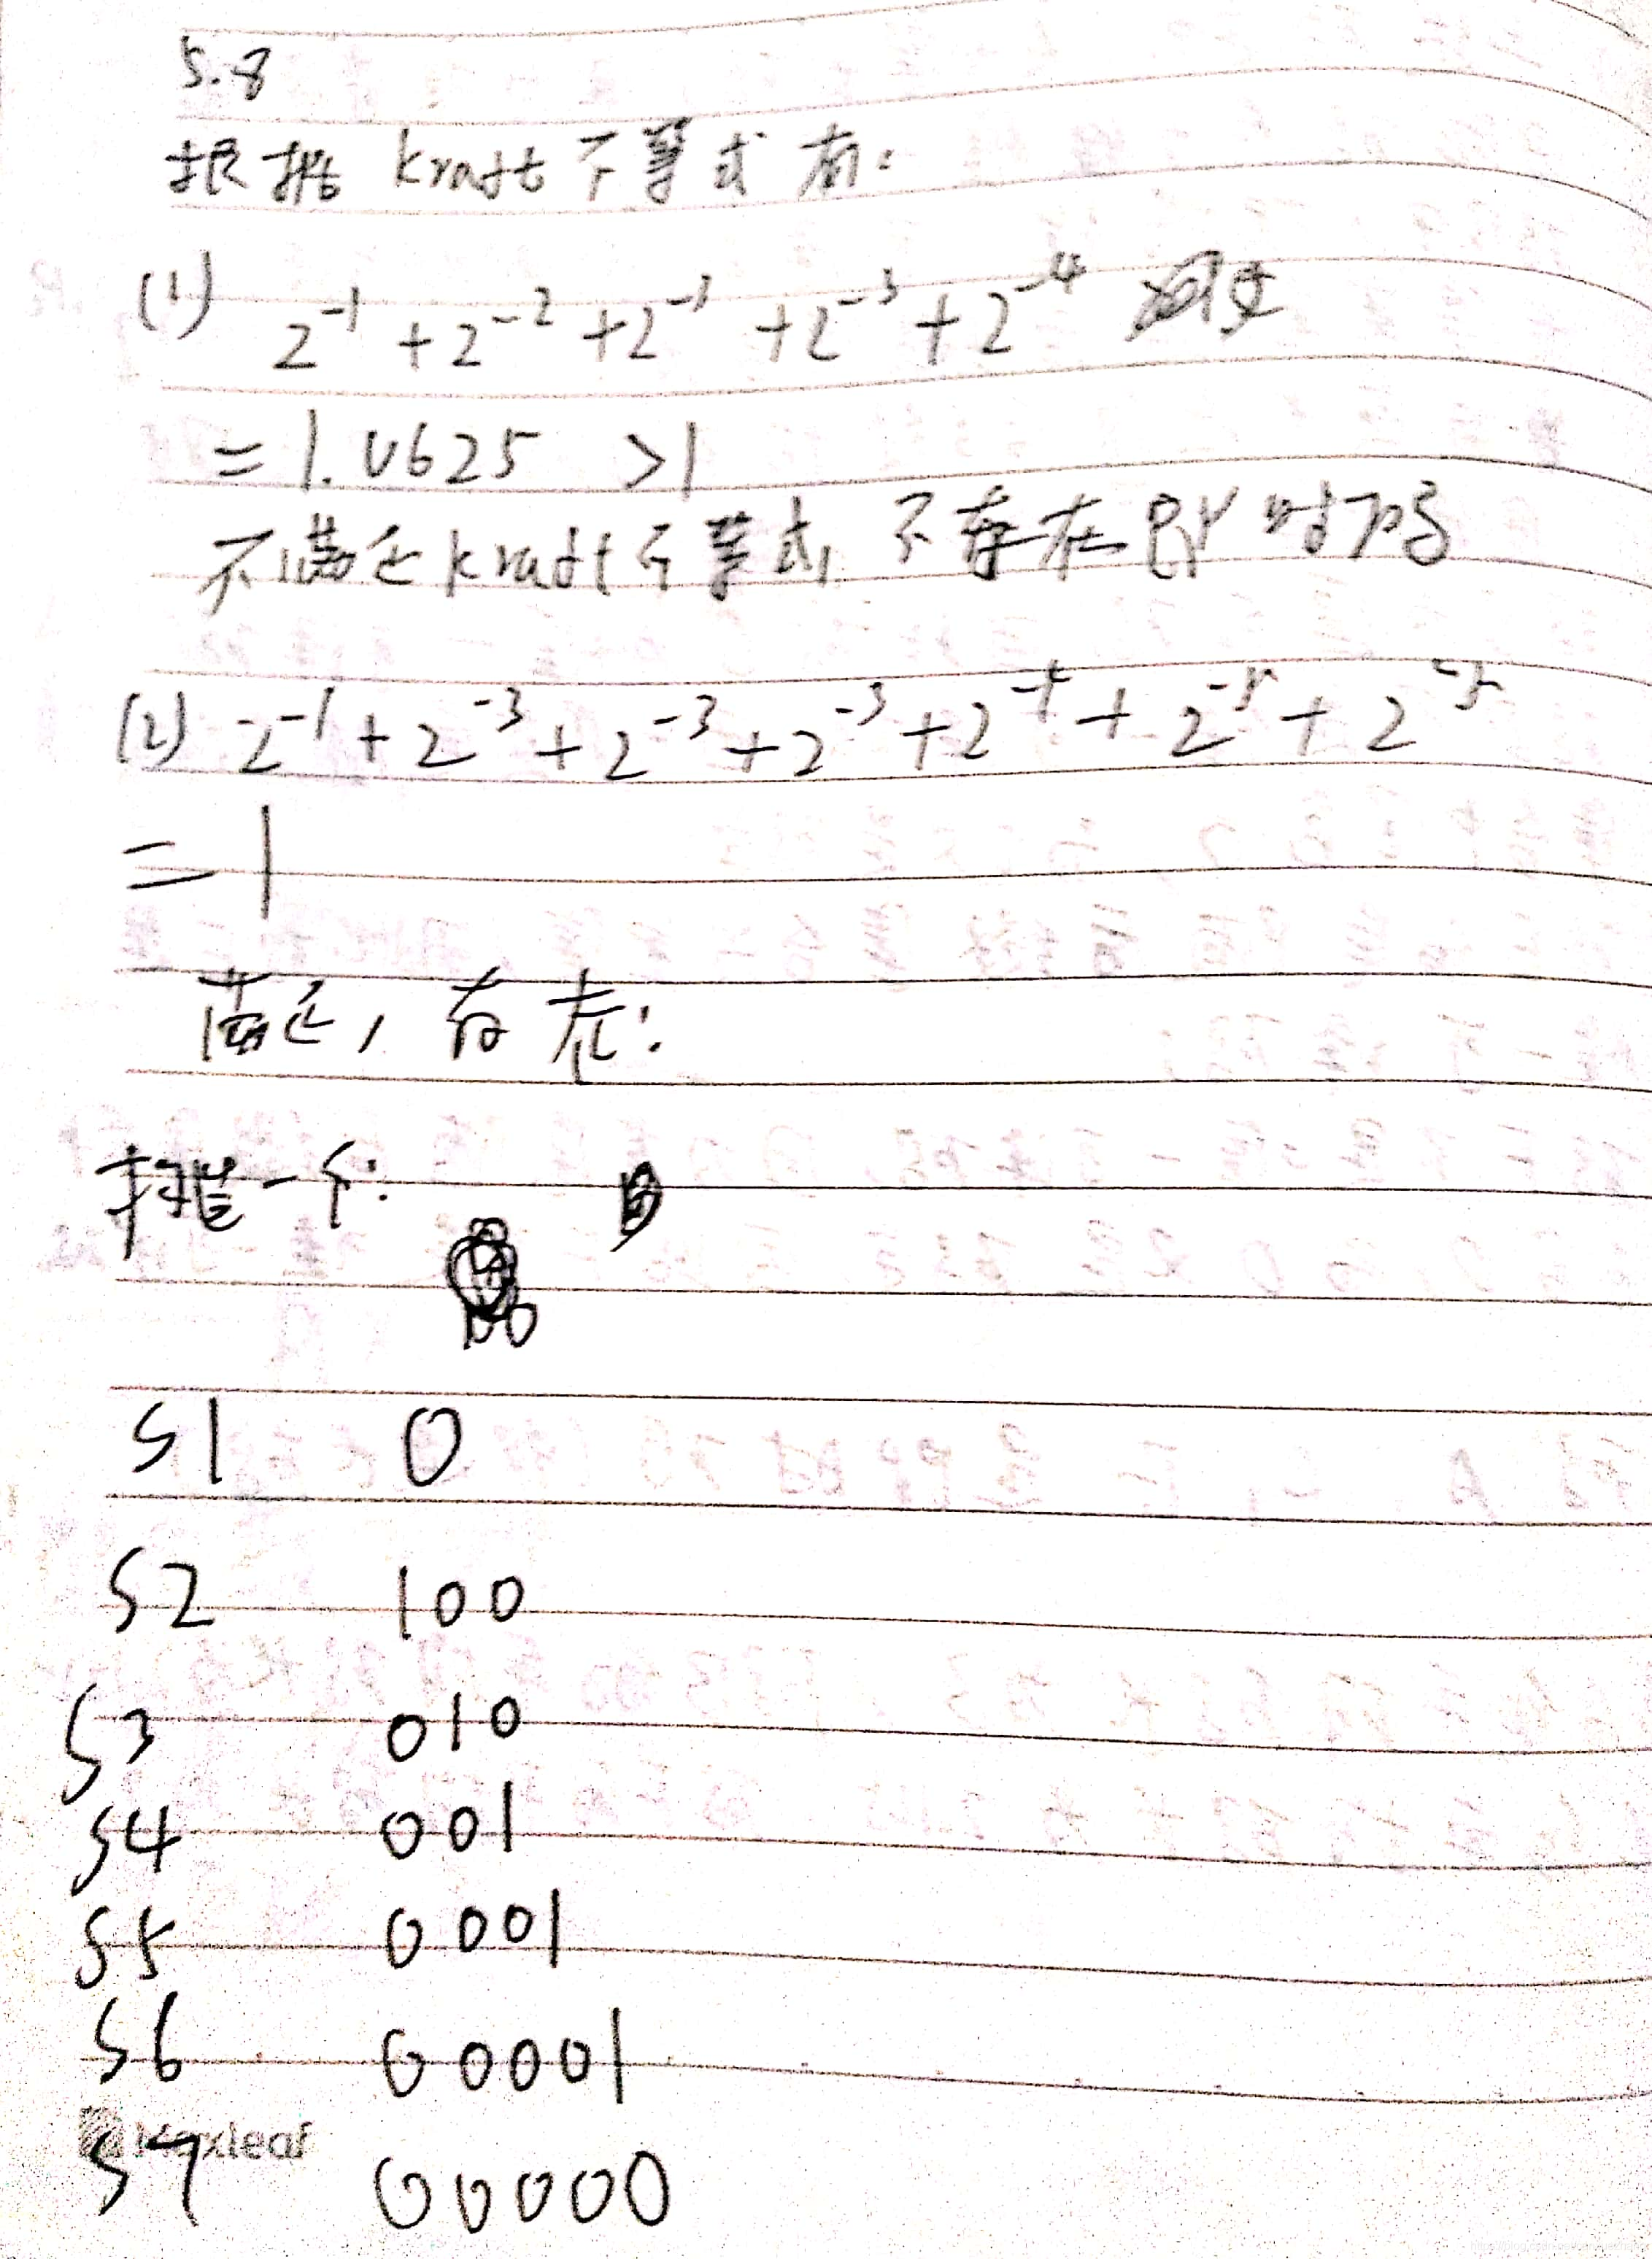 5.8
根据 kraft 不等式有:
(1) 2^-1 + 2^-2 + 2^-3 + 2^-3 + 2^-4
= 1.0625 >1
不满足kraft不等式, 不存在即时码
(2) 2^-1 + 2^-3 + 2^-3 + 2^-3 + 2^-4 + 2^-5 + 2^-5
= 1
满足, 存在:
一个:
00
S1 0
S2 100
S3 010
S4 001
S5 0001
S6 00001
Maxleaf
S7 00000